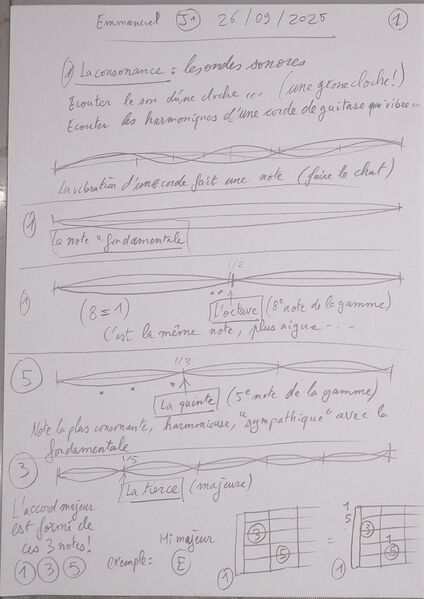 Emmanuel J1 26/09/2025 1
1) La consonance : les ondes sonores
Ecouter le son d'une cloche ... (une grosse cloche!)
Ecouter les harmoniques d'une corde de guitare qui vibre...
La vibration d'une corde fait une note (faire le chat)
1
La note "fondamentale
1/2
1 (8=1) L'octave (8e note de la gamme)
C'est la même note, plus aigue - - -
1/3
5
La quinte (5e note de la gamme)
Note la plus consonante, harmonieuse, "sympathique" avec la
fondamentale
3
1/5
La tierce (majeure)
L'accord majeur
est formé de
ces 3 notes!
1 3 5
exemple= Mi majeur
E
1 3 5 = 1 5 3 1 5 1